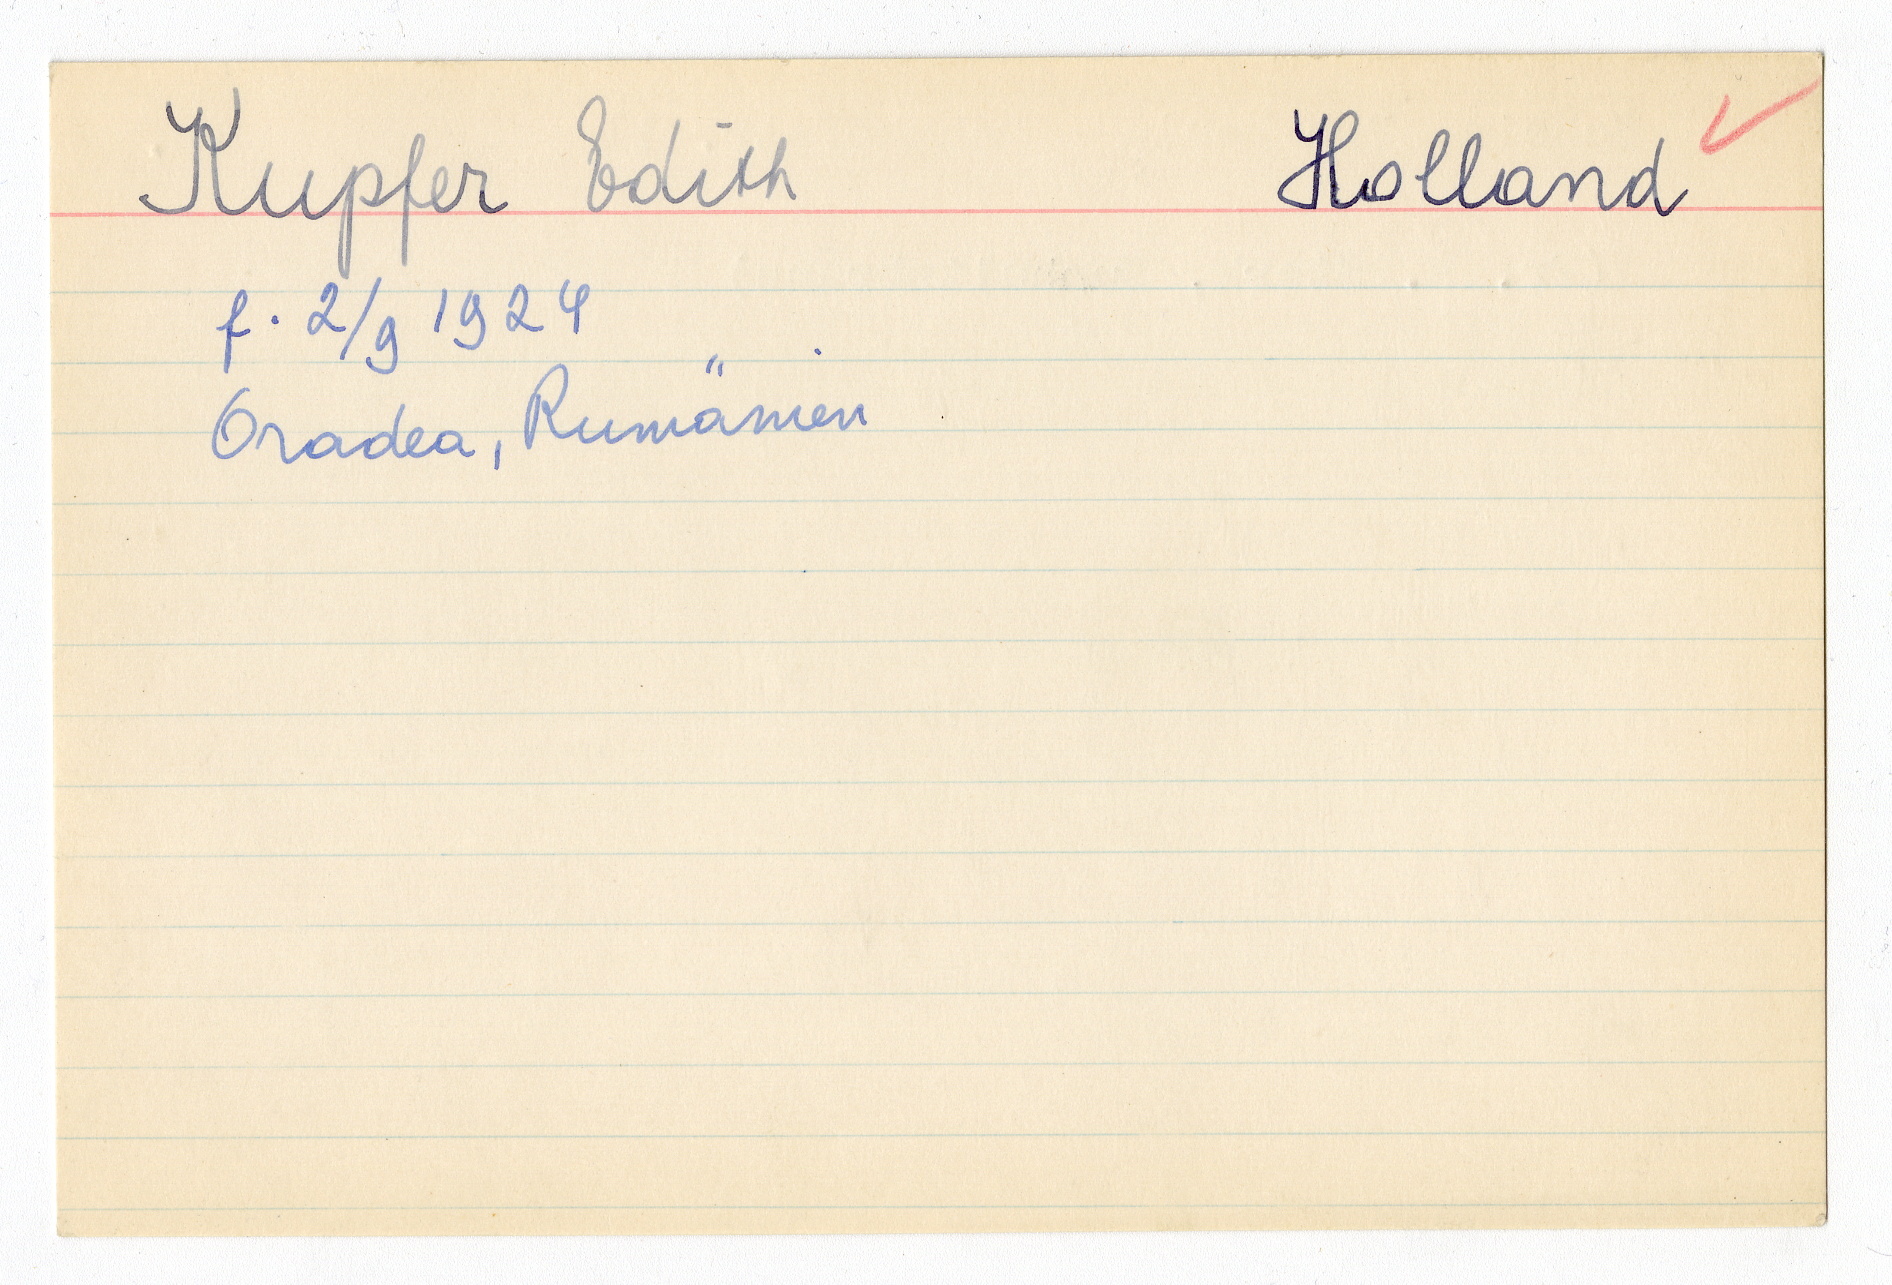 Kupfer Edith Holland
f. 2/9 1924
Oradea, Rumänien